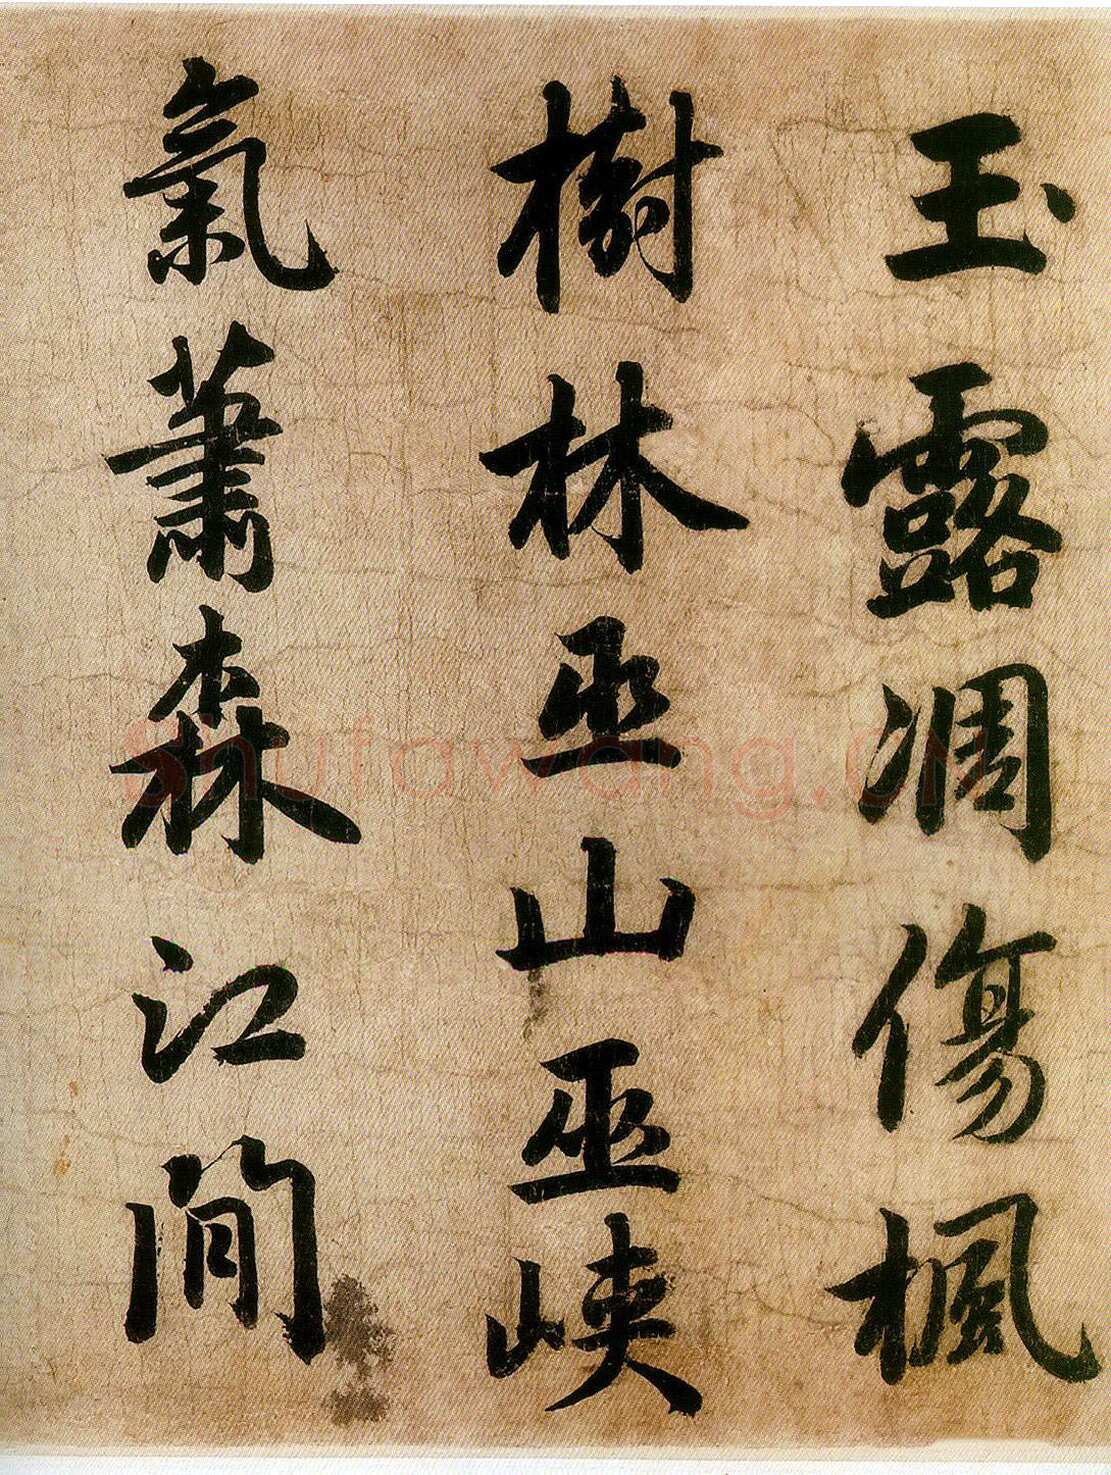 玉露凋傷楓
樹林巫山巫峡
氣蕭森江間
Shufawang.cn